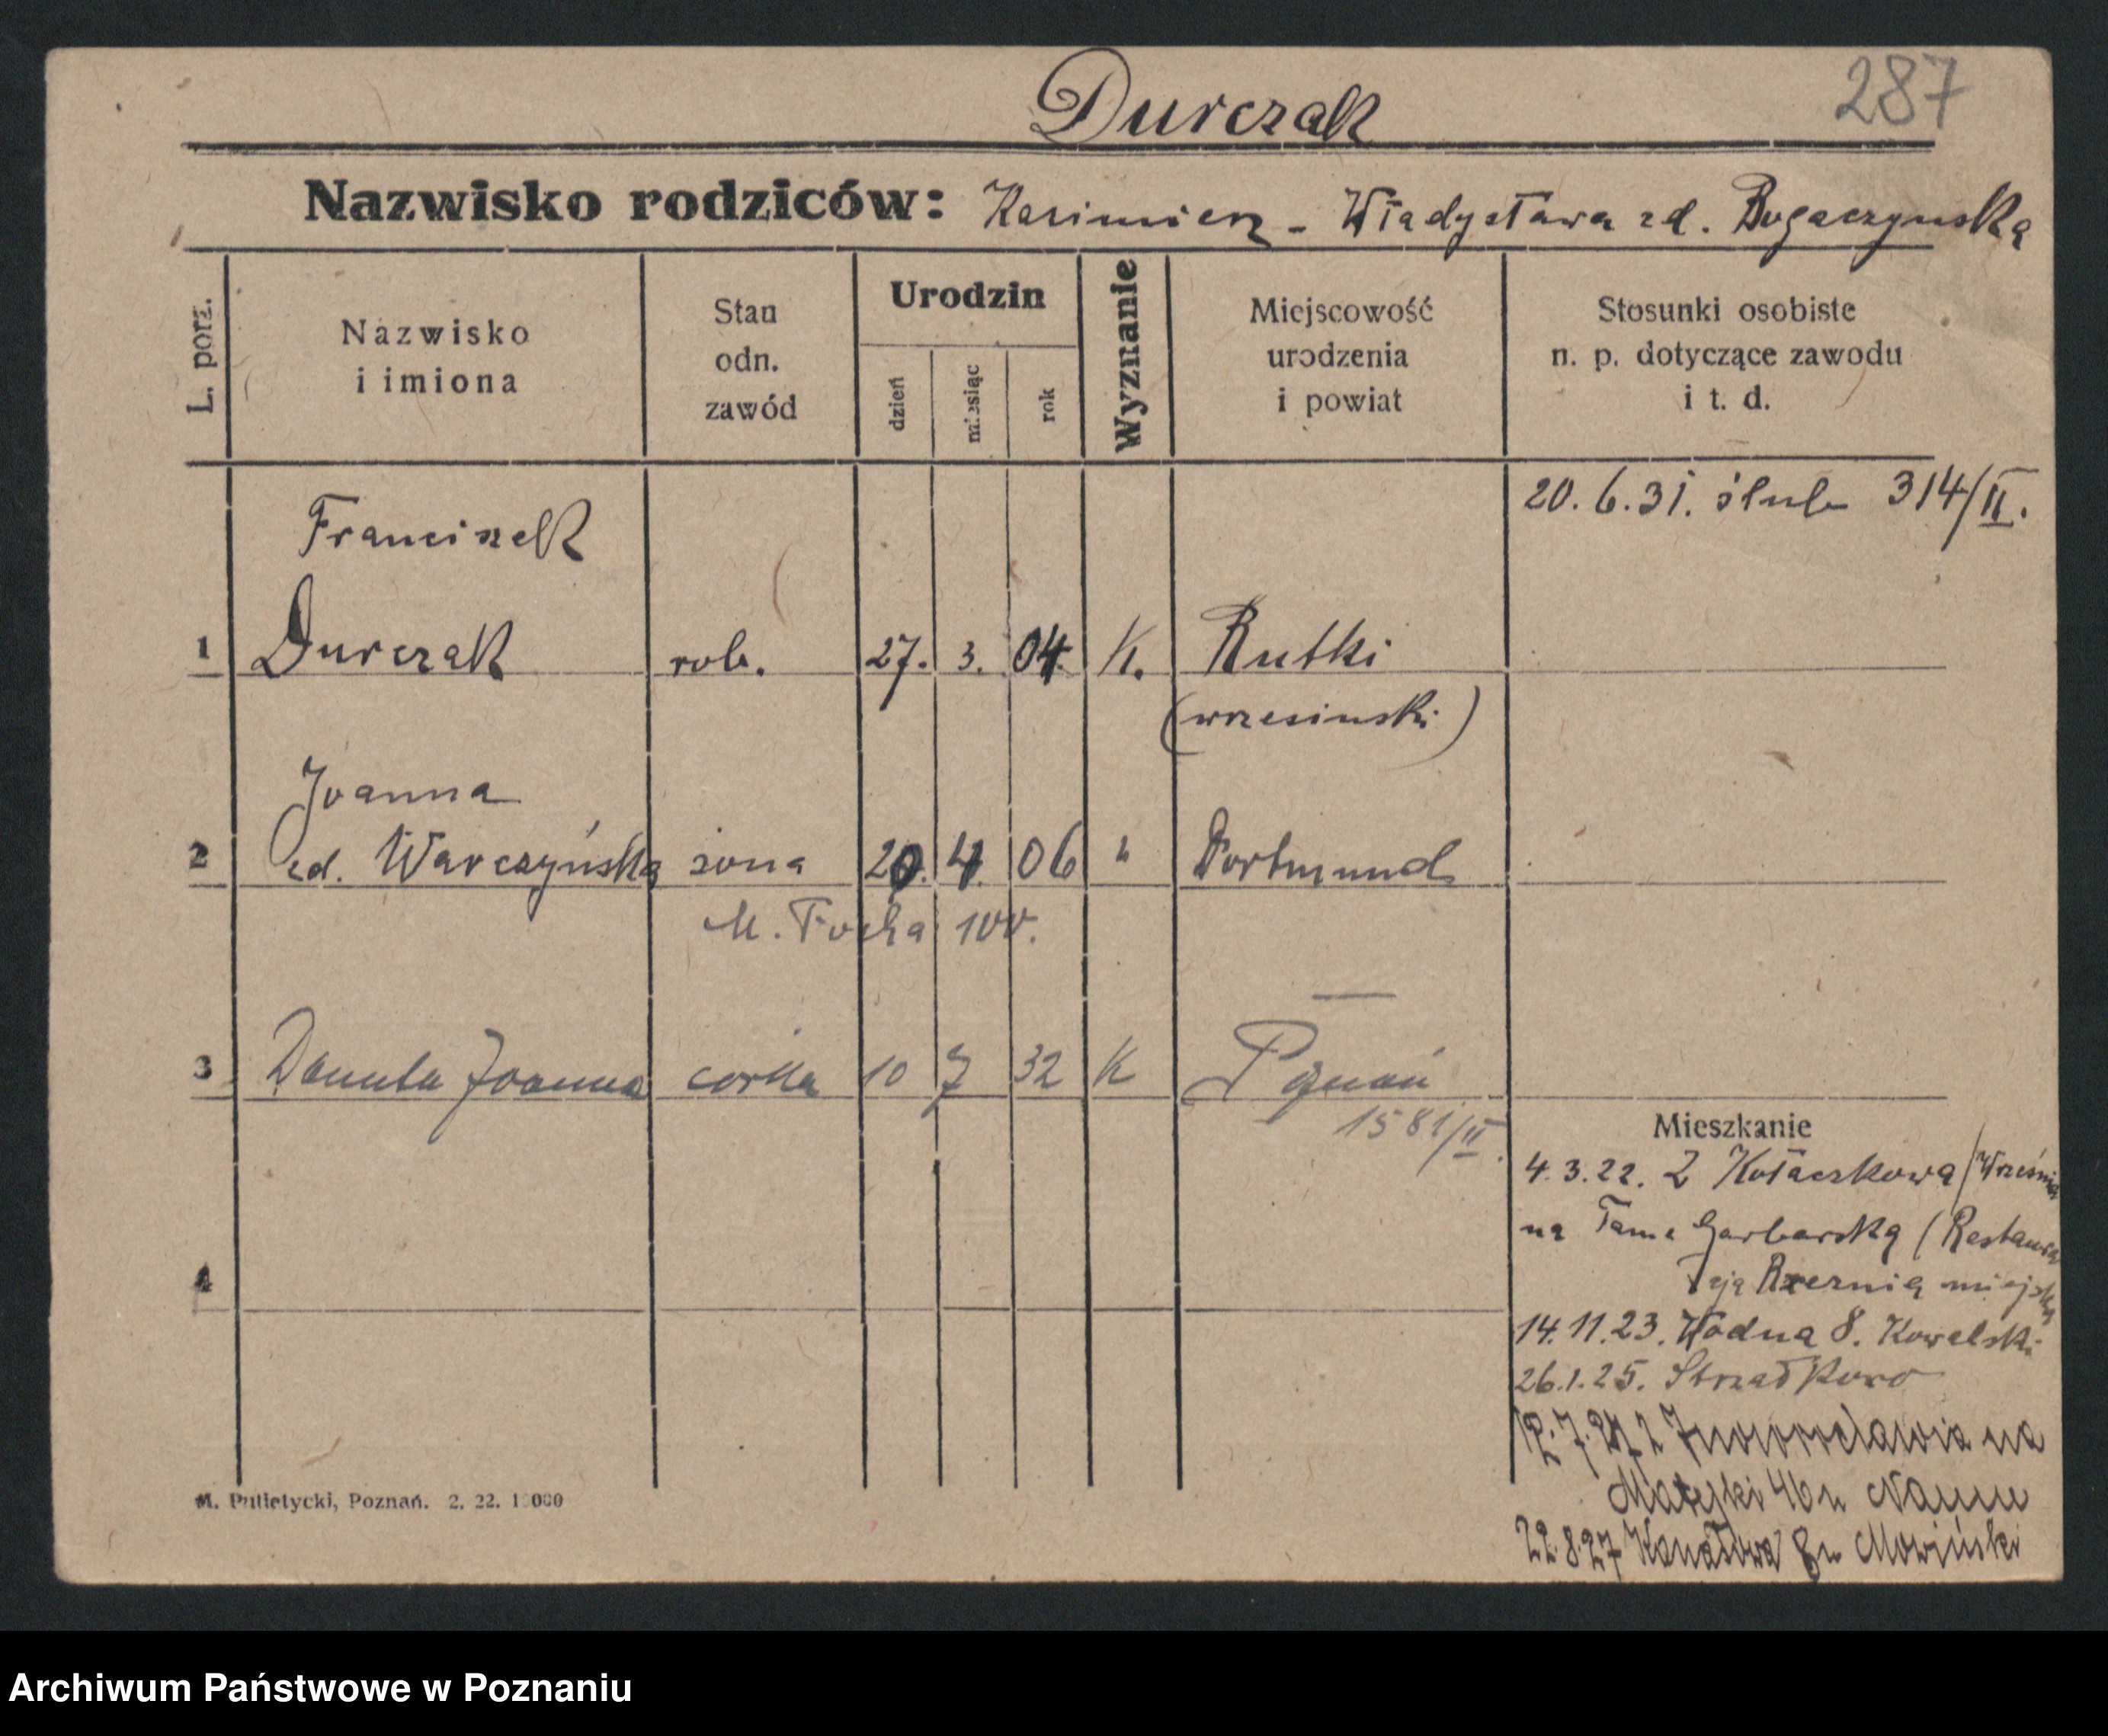 Durczak
287
Nazwisko rodziców: Kazimierz - Władysława zd. Bogaczyńska
L. porz.
Nazwisko
i imiona
Stan
odn.
zawód
Urodzin
dzień
miesiąc
rok
Wyznanie
Miejscowość
urodzenia
i powiat
Stosunki osobiste
n. p. dotyczące zawodu
i t. d.
20.6.31. ślub 314/II.
Franciszek
1 Durczak rob. 27. 3. 04. K. Rutki
(wrzesinski)
Joanna
2 zd. Warczyńska żona 20. 4. 06 " Dortmund
M. Focha 100.
3 Danuta Joanna córka 10 7 32 K Poznań
1581/II.
Mieszkanie
4.3.22. Z Kołaczkowa / Września
na Tama Garbarską (Restaura
cja Rzeznia miejska
4
14.11.23. Wodna 8. Kowalski
26.1.25. Strzałkowo
12.7.27 z Inowrocławia na
Matejki 46 u
22.8.27 Kanałowa 8 u
M. Putiatycki, Poznań. 2. 22. 10000
Archiwum Państwowe w Poznaniu